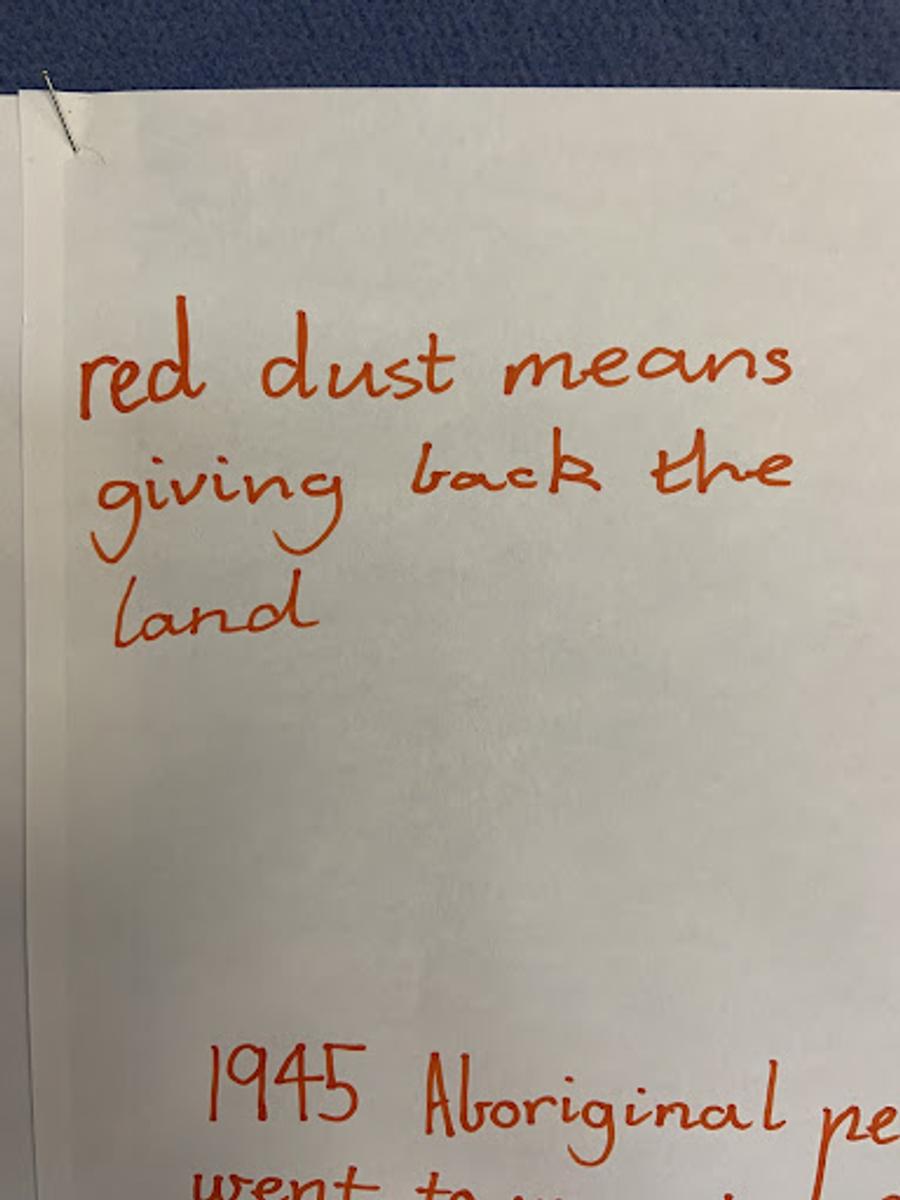 red dust means
giving back the
land
1945 Aboriginal
went to